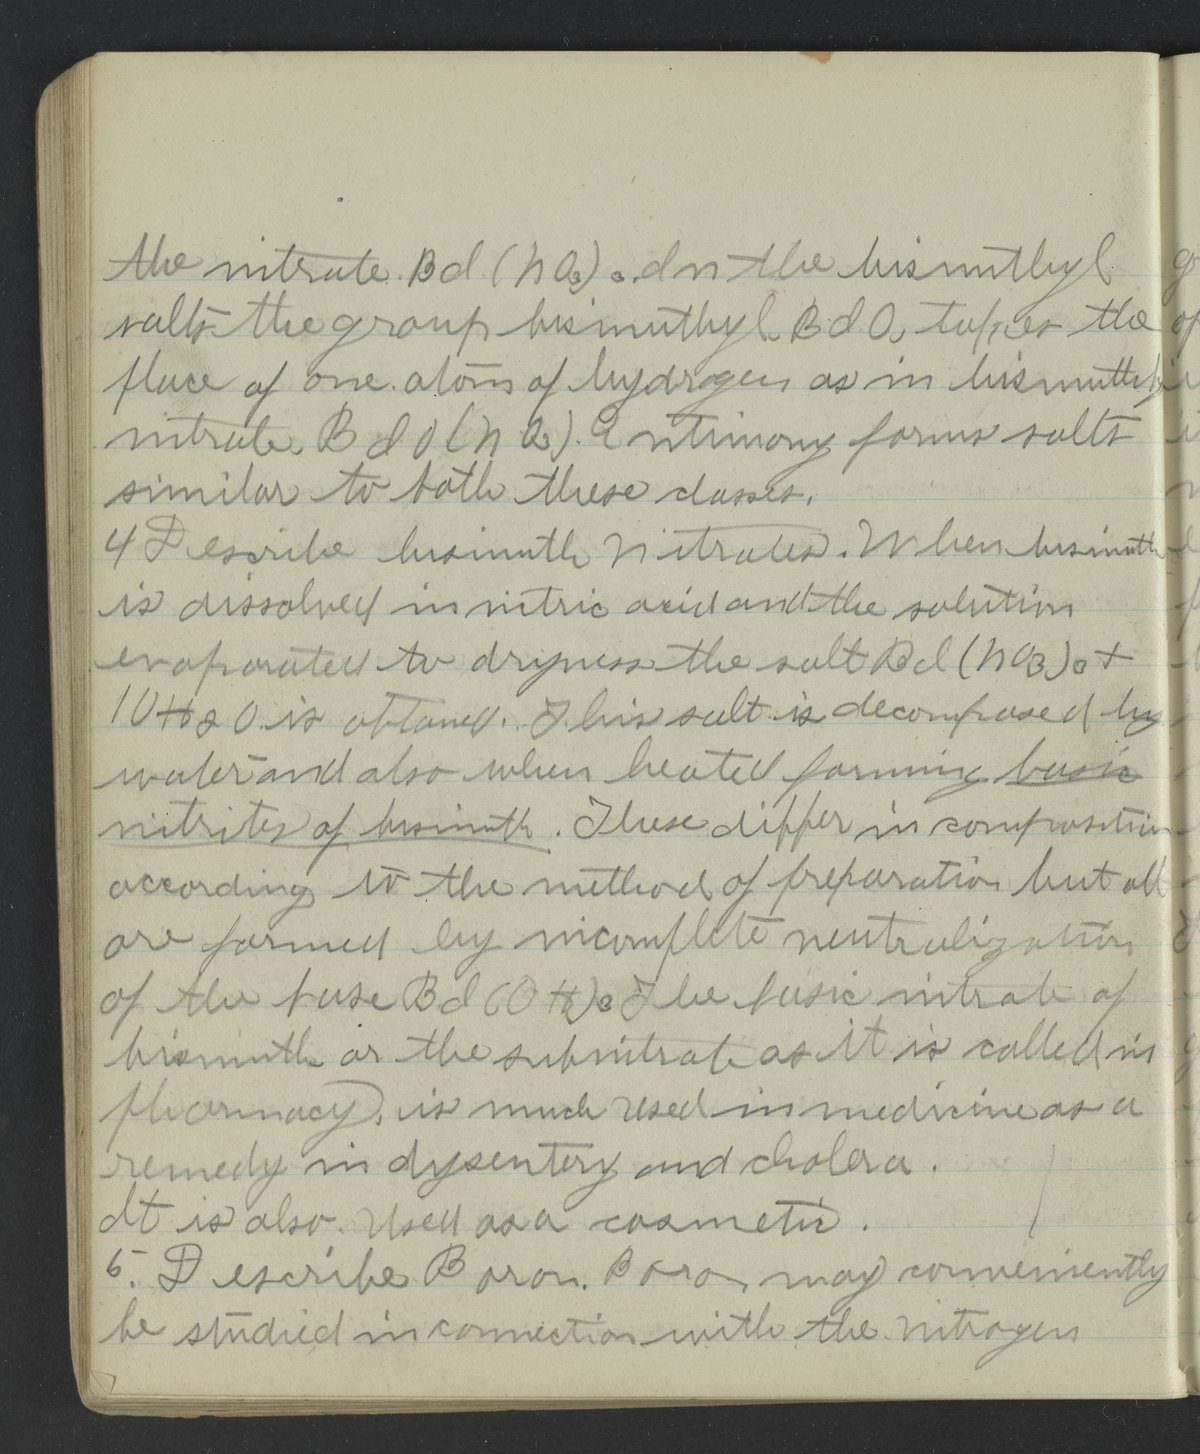 the nitrate Bi(NO3)3. In the bismuthyl
salts the group bismuthyl BiO, takes the
place of one atom of hydrogen as in bismuthyl
nitrate BiO(NO3). Antimony forms salts
similar to both these classes.
4 Describe bismuth Nitrates. When bismuth
is dissolved in nitric acid and the solution
evaporated to dryness the salt Bi(NO3)3 +
10H2O is obtaned. This salt is decomposed by
water and also when heated forming basic
nitrites of bismuth. These differ in composition
according to the method of preparation but all
are formed by incomplete neutralization
of the base Bi(OH)3 The basic nitrate of
bismuth or the subnitrate as it is called in
pharmacy, is much used in medicine as a
remedy in dysentery and cholera.
It is also used as a cosmetic.
5. Describe Boron. Boron may conveniently
be studied in connection with the nitrogen